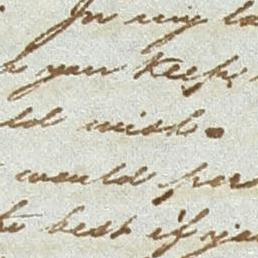 In my la
you keep
ld wish.
would per
best if you